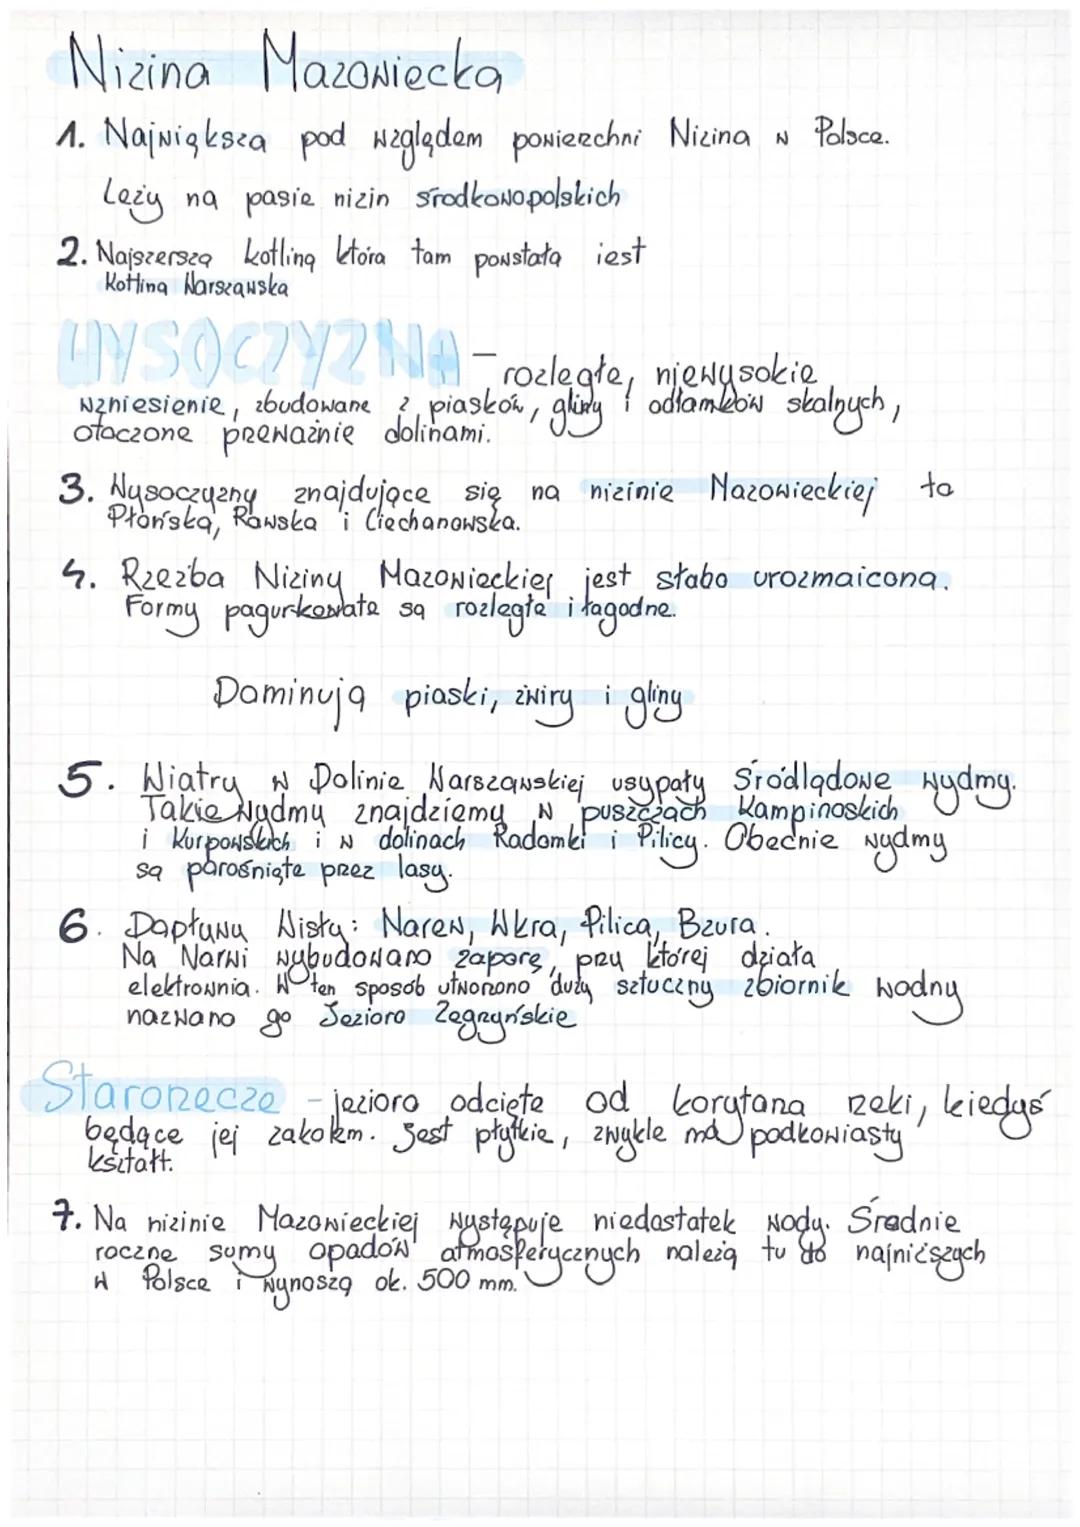 Nizina Mazowiecka
1. Największa pod względem powierzchni Nizina w Polsce.
Leży na pasie nizin środkowopolskich
2. Najszerszą kotliną która tam powstała jest
Kotlina Warszawska
WYSOCZYZNA - rozległe, niewysokie
wzniesienie, zbudowane z piasków, gliny i odłamków skalnych,
otoczone przeważnie dolinami.
3. Wysoczyzny znajdujące się na nizinie Mazowieckiej to
Płońska, Rawska i Ciechanowska.
4. Rzeźba Niziny Mazowieckiej jest słabo urozmaicona.
Formy pagórkowate są rozległe i łagodne.
Dominują piaski, żwiry i gliny
5. Wiatry w Dolinie Warszawskiej usypały Śródlądowe wydmy.
Takie wydmy znajdziemy w puszczach Kampinoskich
i Kurpowskich i w dolinach Radomki i Pilicy. Obecnie wydmy
są porośnięte przez lasy.
6. Dopływy Wisły: Narew, Wkra, Pilica, Bzura.
Na Narwi wybudowano zaporę, przy której działa
elektrownia. W ten sposób utworzono duży sztuczny zbiornik wodny
nazwano go Jezioro Zegrzyńskie
Starorzecze - jezioro odcięte od koryta rzeki, kiedyś
będące jej zakolem. Jest płytkie, zwykle ma podkowiasty
kształt.
7. Na nizinie Mazowieckiej występuje niedostatek wody. Średnie
roczne sumy opadów atmosferycznych należą tu do najniższych
w Polsce i wynoszą ok. 500 mm.